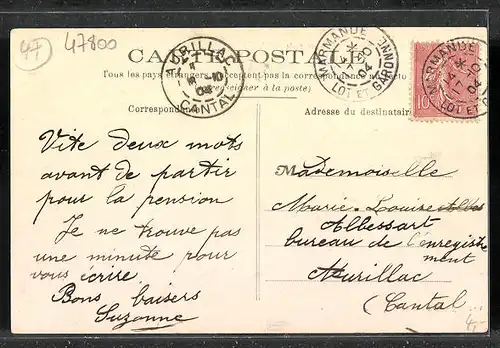 47
47800
CARTE POSTALE
Tous les pays étrangers n'acceptent pas la correspondance au recto
(se renseigner à la poste)
AURILLAC
CANTAL
MARMANDE
LOT ET GARONNE
MARMANDE
LOT ET
10
Correspondance
Adresse du destinataire
Vite deux mots
avant de partir
pour la pension
Je ne trouve pas
une minute pour
vous écrire
Bons baisers
Suzanne
Mademoiselle
Marie-Louise
Albessart
bureau de l'enregistre
ment
Aurillac
(Cantal